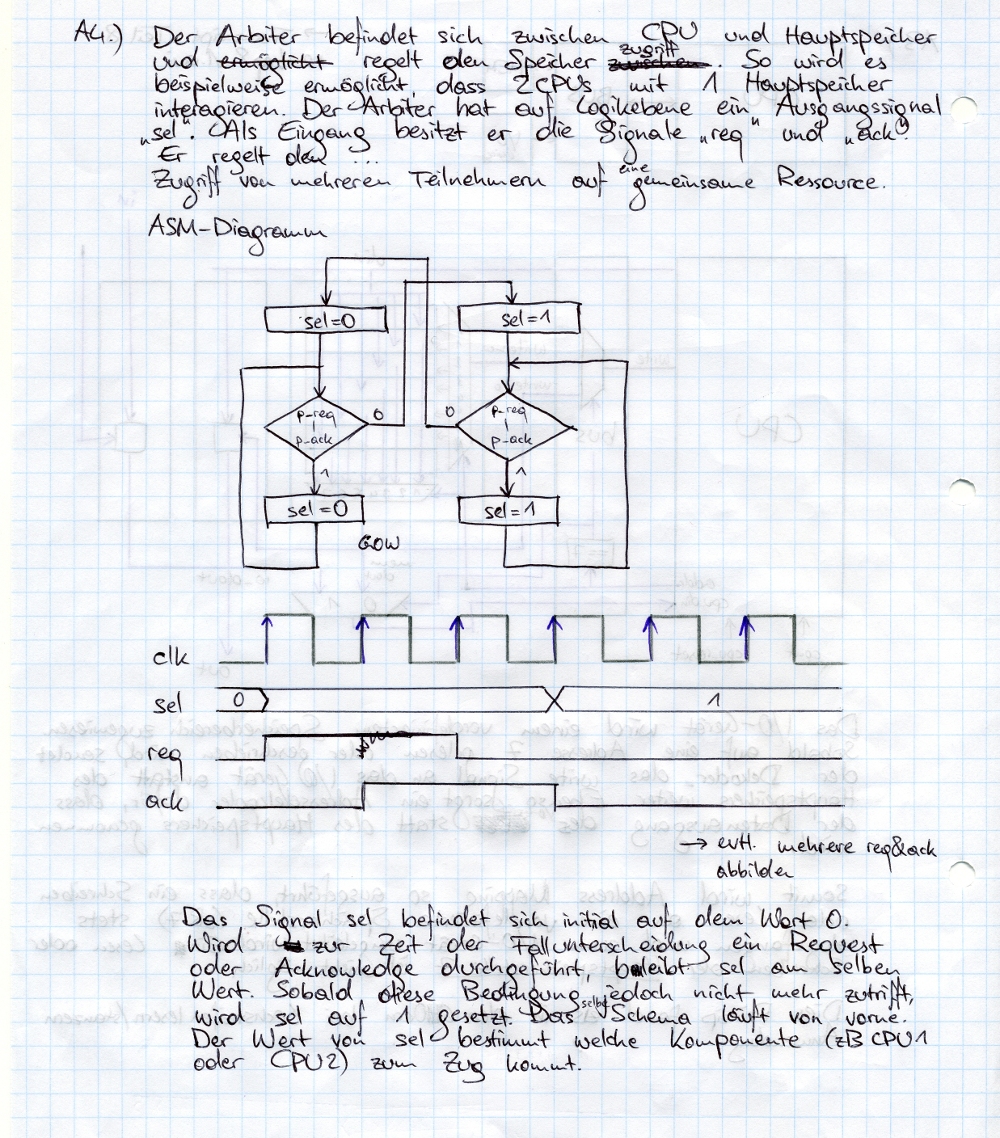 A4.) Der Arbiter befindet sich zwischen CPU und Hauptspeicher
und ermöglicht regelt den Speicher zugriff zwischen. So wird es
beispielweise ermöglicht, dass 2 CPUs mit 1 Hauptspeicher
interagieren. Der Arbiter hat auf Logikebene ein Ausgangssignal
„sel". Als Eingang besitzt er die Signale „req" und „ack".
Er regelt den ...
Zugriff von mehreren Teilnehmern auf eine gemeinsame Ressource.
ASM-Diagramm
sel=0
sel=1
p-req
|
p-ack
0
1
p-req
|
p-ack
0
1
sel=0
sel=1
GOW
clk
sel 0 1
req
ack
→ evtl. mehrere req&ack
abbilden
Das Signal sel befindet sich initial auf dem Wort 0.
Wird zur Zeit der Fallunterscheidung ein Request
oder Acknowledge durchgeführt, bleibt sel am selben
Wert. Sobald diese Bedingung selbst jedoch nicht mehr zutrifft,
wird sel auf 1 gesetzt. Das Schema läuft von vorne.
Der Wert von sel bestimmt welche Komponente (zB CPU1
oder CPU2) zum Zug kommt.